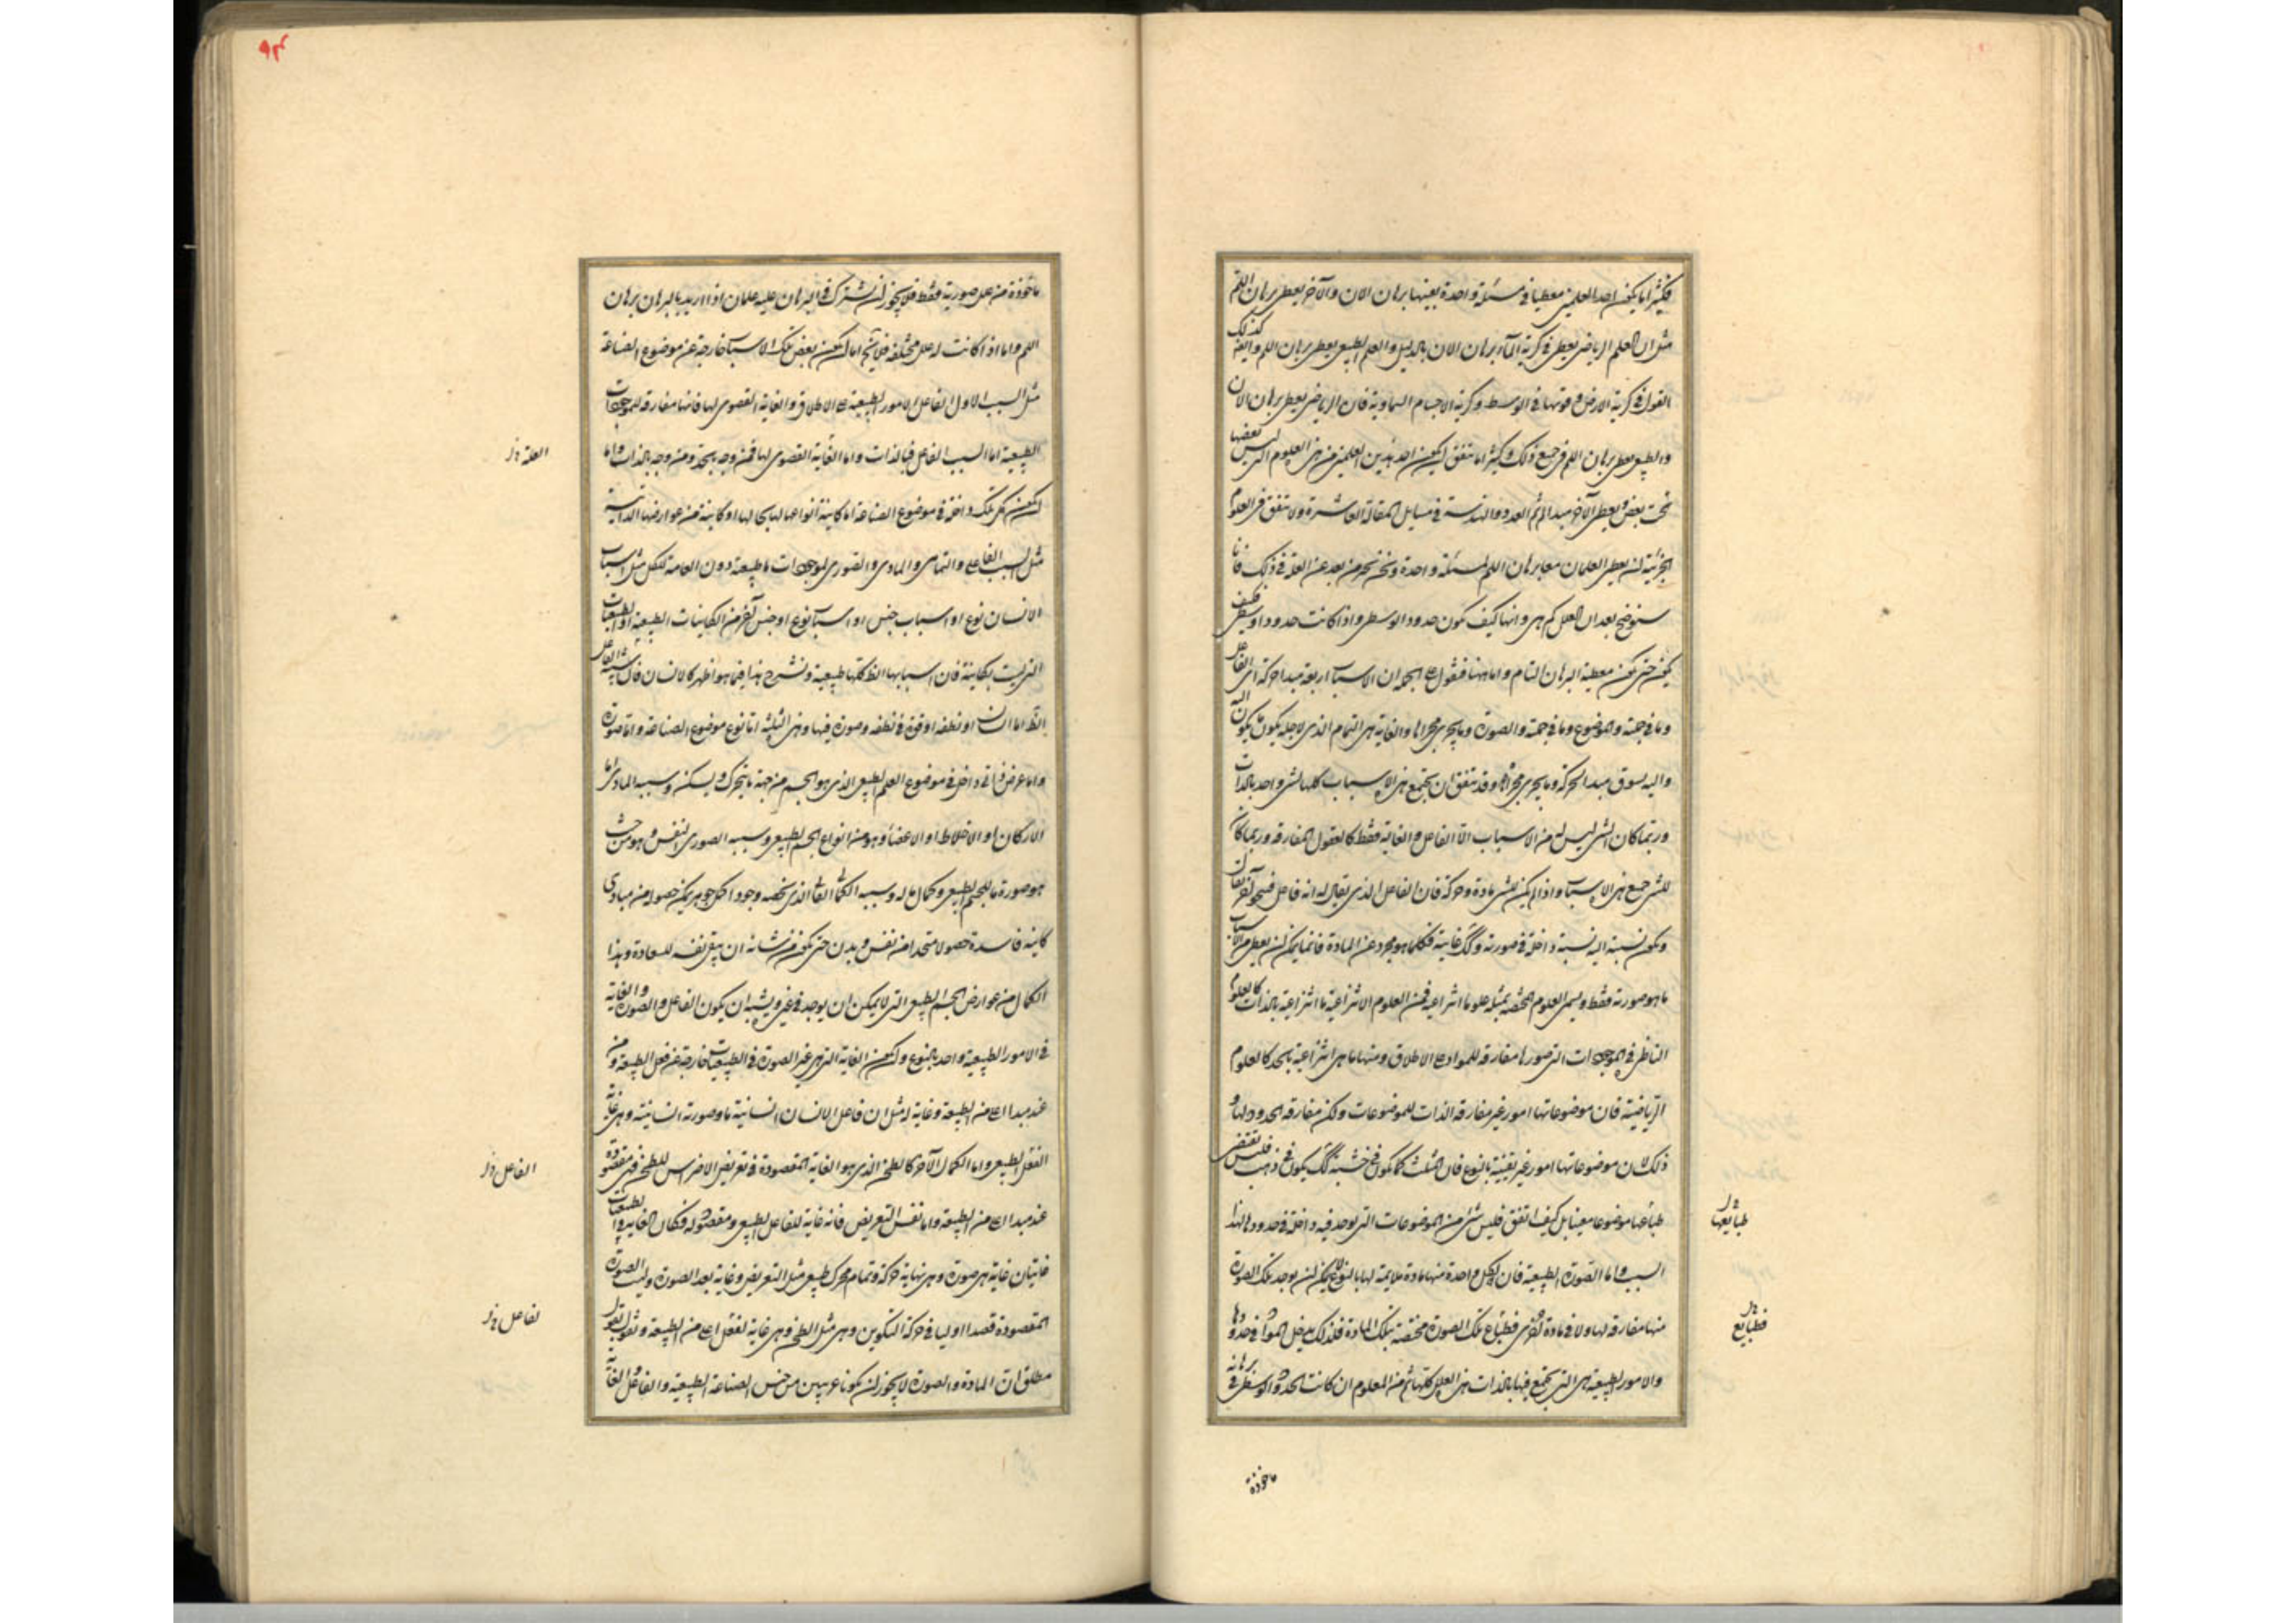 فكثيرا ما يكون احد العلمين معطيا فى مسئلة واحدة بعينها برهان الان والآخر يعطى برهان اللم
مثل ان العلم الرياضى يعطى فى كرية الماء برهان الان بالدليل والعلم الطبيعى يعطى برهان اللم كذلك
القول فى كرية الارض وقوتها فى الوسط وكرية الاجسام السماوية فان الرياضى يعطى برهان الان
والطبيعى يعطى برهان اللم فى جميع ذلك وكثيرا ما يتفق ان يكون احد هذين العلمين من هى العلوم التى ليس بعضها
تحت بعض ويعطى الآخر مبدا لم ثم العدد والهندسة فى مسايل المقالة العاشرة ولا يتفق فى العلوم
الجزئية ان يعطى العلمان معا برهان اللم لمسئلة واحدة ونحن نخبر من بعد عن العلة فى ذلك فانا
سنوضح بعد ان العلل كم هى وانها كيف تكون حدود الوسطى واذا كانت حدودا وسطى فكيف
يكون حتى تكون معطية البرهان التام واما هنا فنقول على الجملة ان الاسباب اربعة مبدا حركة اى الفاعل
وما فى جهته والموضوع وما فى جهته والصورة وما يجرى مجراها والغاية هى التمام الذى لاجله يكون ما يكون
واليه يسوق مبدا الحركة وما يجرى مجراها وقد يتفق ان يجتمع هى الاسباب كلها لشى واحد بالذات
وربما كان الشى ليس له من الاسباب الا الفاعل والغاية فقط كالعقول المفارقة وربما كان
للشى جميع هى الاسباب واذا لم يكن للشى مادة وحركة فان الفاعل الذى يقال له انه فاعل فبنحو آخر يقال
وتكون نسبته اليه نسبة داخلة فى صورته وكك غايته فكلما هو مجرد عن المادة فانما يمكن ان يعطى من الاسباب
ما هو صورته فقط ويسمى العلوم المختصه بمثله علوما انتزاعية فمن العلوم الانتزاعية ما انتزاعية بالذات كالعلوم
الناظر فى الموجودات التى صورها مفارقة للمواد على الاطلاق ومنها ما هى انتزاعية بالحد كالعلوم
الرياضية فان موضوعاتها امور غير مفارقة الذات للموضوعات ولكن مفارقة الحدود لها و
ذلك لان موضوعاتها امور غير يقينية بالنوع فان المثلث كما يكون فى خشبة كك يكون فى ذهب فليس تقتضى
طباعها موضوعا معينا بل كيف اتفق فليس شى من الموضوعات التى يوجد فيه داخلة فى حدودها لهذا
السبب واما الصورة الطبيعية فان لكل واحدة منها مادة ملايمة لها بالنوع لا يمكن ان يوجد تلك الصورة
منها مفارقة لها ولا فى مادة اخرى فطباع تلك الصورة مختصة بتلك المادة فلذلك يدخل المواد فى حدودها
والامور الطبيعية هى التى يجتمع فيها بالذات هى العلل كلها ثم من المعلوم ان كانت الحدود الوسطى فى برهانه
طبايعها
فطبايع
ماخوذة
ماخوذة من علل صورية فقط فلا يجوز ان يشترك فى البرهان عليه علمان اذا اريد بالبرهان برهان
اللم واما اذا كانت له علل مختلفة فلا يخ اما ان يكون بعض تلك الاسباب خارجة عن موضوع الصناعة
مثل السبب الاول الفاعل للامور الطبيعية على الاطلاق والغاية القصوى لها فانها مفارقة للموجودات
الطبيعية اما السبب الفاعل فبالذات واما الغاية القصوى لها فمن وجه بحد ومن وجه بالذات واما
ان يكون كل تلك داخلة فى موضوع الصناعة اما كاينة انواعها لها بحالها او كاينة من عوارضها الذاتية
مثل السبب الفاعلى والتمامى والمادى والصورى لموجودات ما طبيعية دون العامة للكل مثل اسباب
الانسان نوع او اسباب جنس او اسباب نوع او جنس آخر من الكاينات الطبيعية او الطبيعيات
التى ليست بكاينة فان اسبابها الظ كلها طبيعية ونشرح هذا فيما هو اظهر كالانسان فان سببه الفاعل
الظ اما انسان او نطفة او قوة فى نطفة وصورة فيها وهى الثلثة اما نوع موضوع الصناعة واما صورة
واما عرض ذاتى داخل فى موضوع العلم الطبيعى الذى هو الجسم من جهة ما يتحرك ويسكن وسببه المادى اما
الاركان او الاخلاط او الاعضاء وهو من انواع الجسم الطبيعى وسببه الصورى النفس وهو من حيث
هو صورة ما للجسم الطبيعى وكمال ما له وسببه الكمالى الغائى الذى يخصه وجود اكمل جوهر يمكن حصوله من مبادى
كاينة فاسدة حصولا متحدا من نفس وبدن حتى يكون من شانه ان يبقى نفسه للسعادة وهذا
الكمال من عوارض الجسم الطبيعى التى لا يمكن ان يوجد فى غيره ويشبه ان يكون الفاعل والصورة والغاية
فى الامور الطبيعية واحد بالنوع ولكن الغاية التى هى غير الصورة فى الطبيعيات خارجة عن فعل الطبيعة ومن
عند مبدا اعلى من الطبيعة وغاية له مثل ان فاعل الانسان انسانية ما وصورته انسانية وهى غاية
الفعل الطبيعى واما الكمال الآخر كالطحن الذى هو الغاية المقصودة فى تعريض الاضراس للطحن فهى مقصودة
عند مبدا اعلى من الطبيعة واما نفس التعريض فانه غاية للفاعل الطبيعى ومقصوله فكان الطبيعيات
غايتان غاية هى صورة وهى نهاية حركة وتمام محرك طبيعى مثل التعريض وغاية بعد الصورة وليست الصورة
المقصودة قصدا اوليا فى حركة التكوين وهى مثل الطحن وهى غاية لفعل اعلى من الطبيعة ونقول بقول
مطلق ان المادة والصورة لا يجوز ان يكونا غريبين من جنس الصناعة الطبيعية والفاعل والغاية
العلة
الفاعل
لفاعل